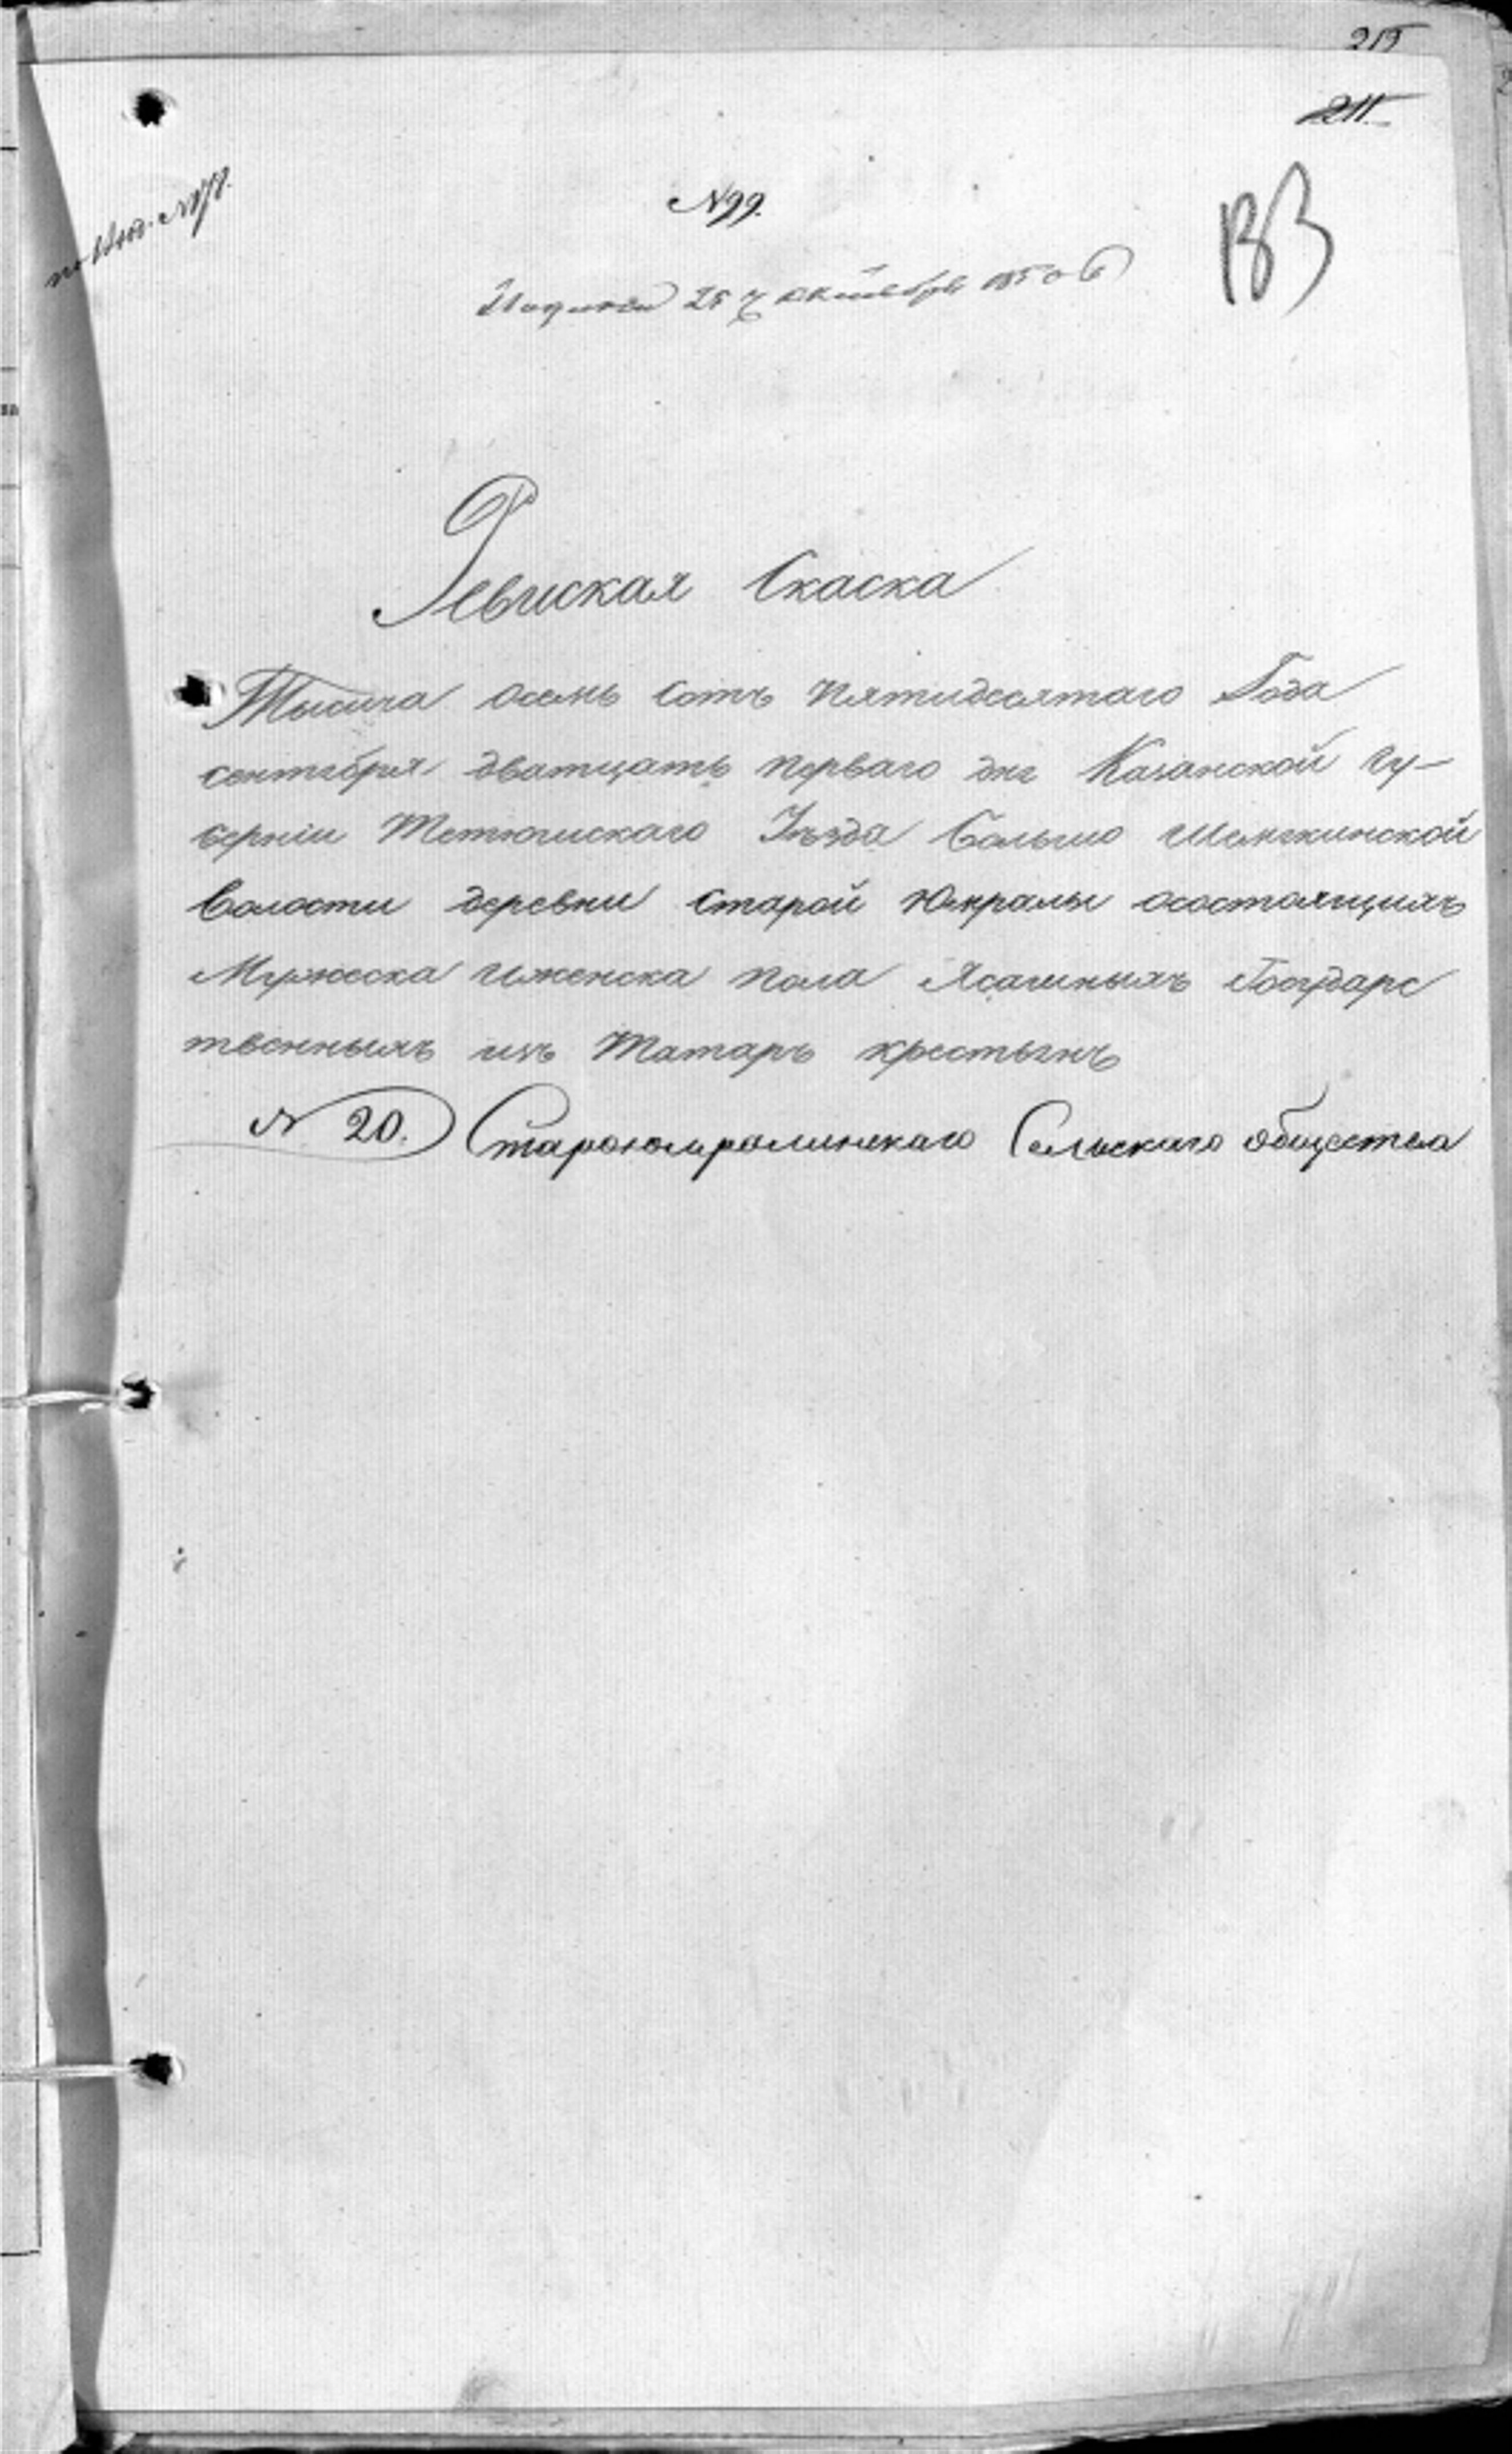 215
211
N99.
183
25 октября 1850
Ревиская Скаска
Тысяча осемь сотъ пятидесятаго Года
сентября дватцать перваго дня Казанской гу-
берніи Тетюшскаго Уѣзда Больше Шемякинской
Волости деревни Старой Юмралы осостоящихъ
Мужеска иженска пола Ясашныхъ Государс
твенныхъ изъ Татаръ крестьянъ
N 20. Староюмралинскаго Сельскаго общества